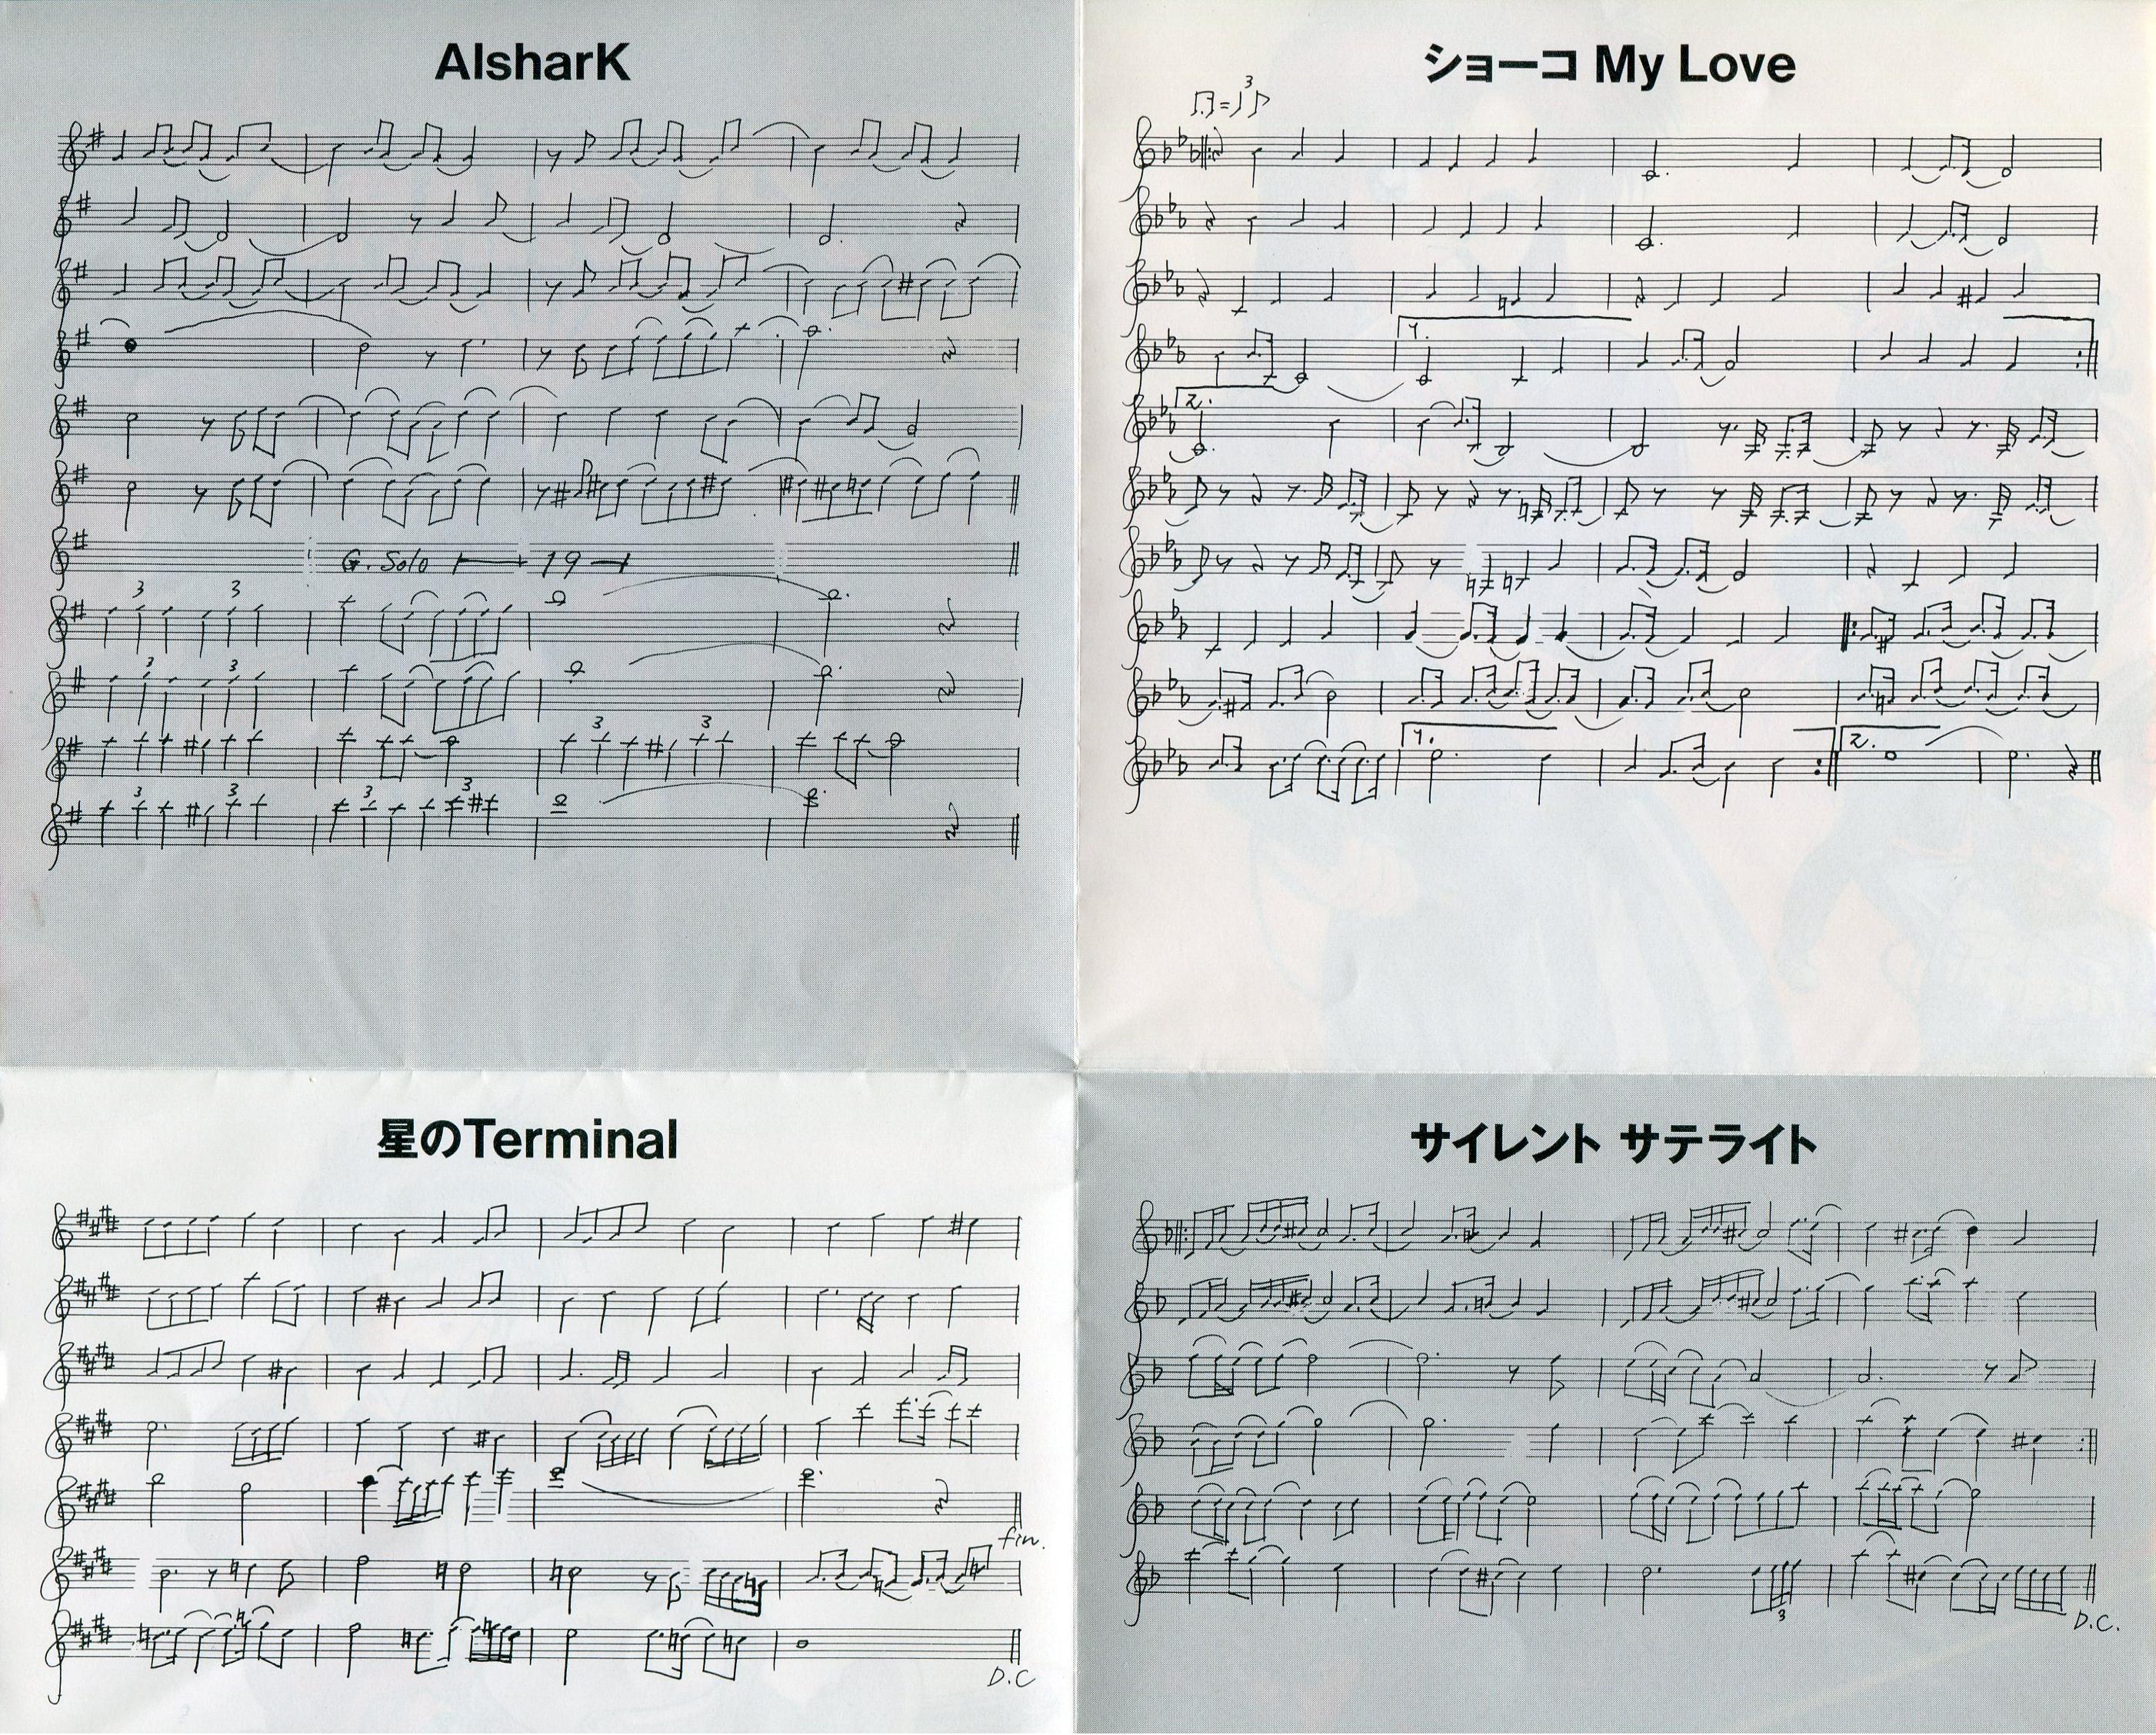 AlsharK
G. Solo 19
3 3
3 3
3 3
3 3 3 3
ショーコ My Love
3
1.
2.
1. 2.
星のTerminal
fin.
D.C
サイレント サテライト
3
D.C.